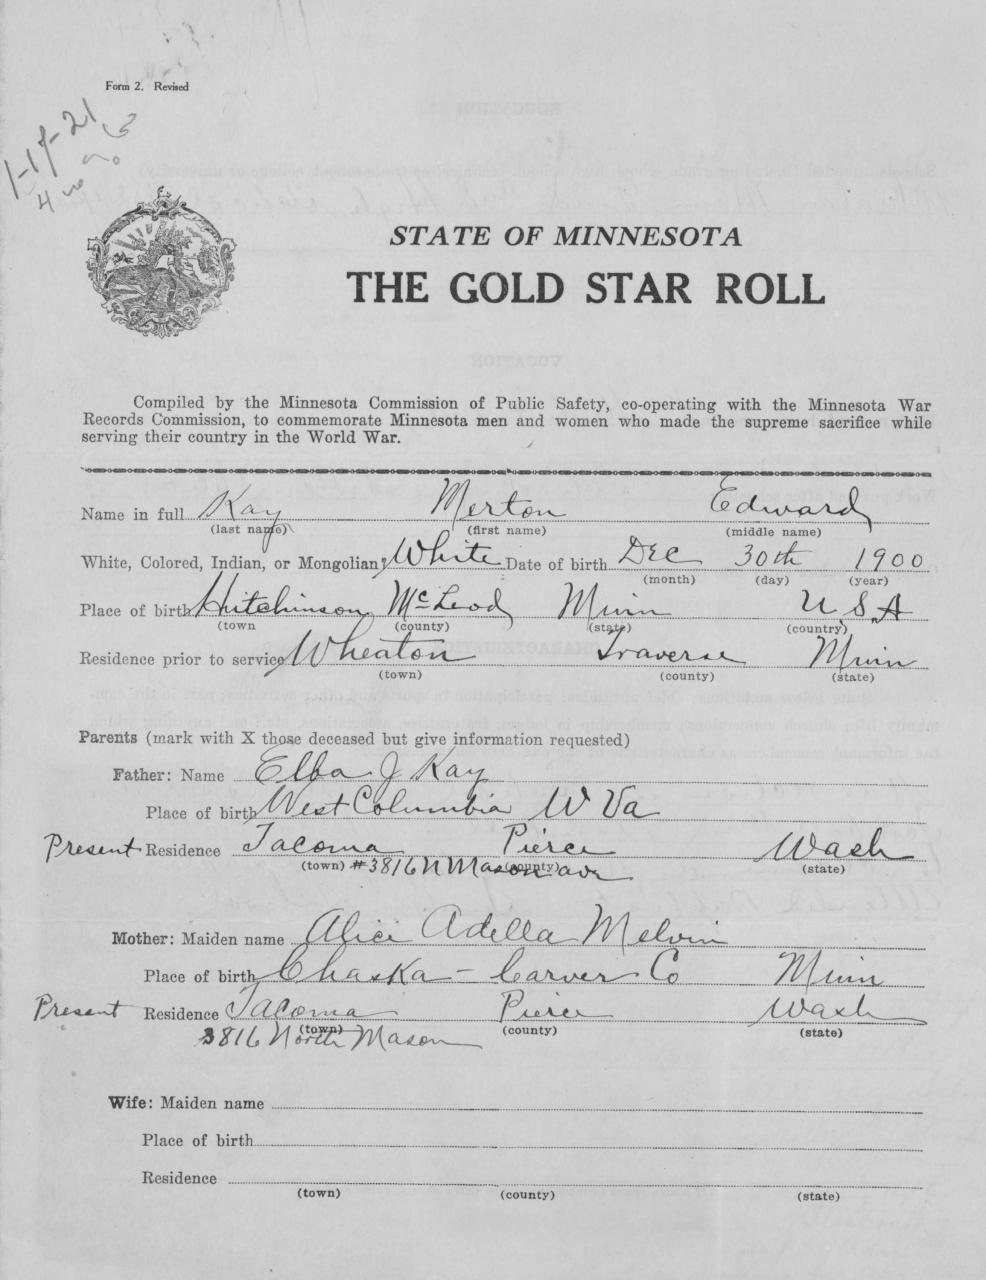 Form 2. Revised
1-17-21
STATE OF MINNESOTA
THE GOLD STAR ROLL
Compiled by the Minnesota Commission of Public Safety, co-operating with the Minnesota War
Records Commission, to commemorate Minnesota men and women who made the supreme sacrifice while
serving their country in the World War.
Name in full Kay Merton Edward
(last name) (first name) (middle name)
White, Colored, Indian, or Mongolian? White Date of birth Dec 30th 1900
(month) (day) (year)
Place of birth Hutchinson McLeod Minn U S A
(town (county) (state) (country)
Residence prior to service Wheaton Traverse Minn
(town) (county) (state)
Parents (mark with X those deceased but give information requested)
Father: Name Elba J Kay
Place of birth West Columbia W Va
Present Residence Tacoma Pierce Wash
(town) #3816 N Mason ave (county) (state)
Mother: Maiden name Alice Adella Melvin
Place of birth Chaska - Carver Co Minn
Present Residence Tacoma Pierce Wash
(town) (county) (state)
3816 North Mason
Wife: Maiden name
Place of birth
Residence
(town) (county) (state)